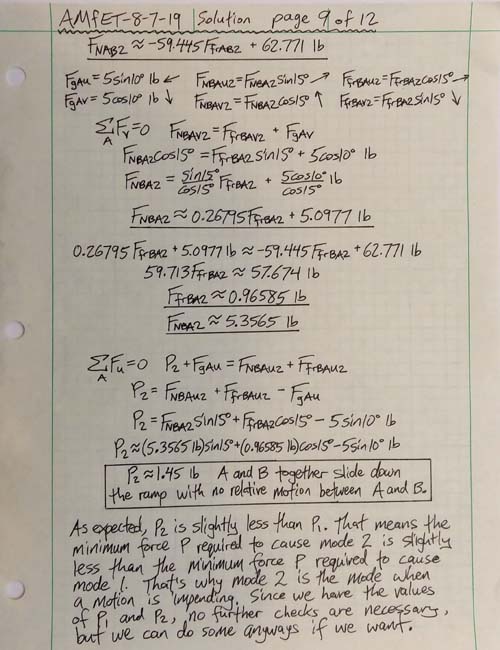 AMfET-8-7-19 | Solution page 9 of 12
F_NAB2 ≈ -59.445 F_frAB2 + 62.771 lb
F_gAu = 5sin10° lb ↙ F_NBAu2 = F_NBA2 sin15° ↗ F_frBAu2 = F_frBA2 cos15° →
F_gAv = 5cos10° lb ↓ F_NBAv2 = F_NBA2 cos15° ↑ F_frBAv2 = F_frBA2 sin15° ↓
∑_A F_v = 0 F_NBAv2 = F_frBAv2 + F_gAv
F_NBA2 cos15° = F_frBA2 sin15° + 5cos10° lb
F_NBA2 = sin15°/cos15° F_frBA2 + 5cos10°/cos15° lb
F_NBA2 ≈ 0.26795 F_frBA2 + 5.0977 lb
0.26795 F_frBA2 + 5.0977 lb ≈ -59.445 F_frBA2 + 62.771 lb
59.713 F_frBA2 ≈ 57.674 lb
F_frBA2 ≈ 0.96585 lb
F_NBA2 ≈ 5.3565 lb
∑_A F_u = 0 P_2 + F_gAu = F_NBAu2 + F_frBAu2
P_2 = F_NBAu2 + F_frBAu2 - F_gAu
P_2 = F_NBA2 sin15° + F_frBA2 cos15° - 5sin10° lb
P_2 ≈ (5.3565 lb)sin15° + (0.96585 lb)cos15° - 5sin10° lb
P_2 ≈ 1.45 lb A and B together slide down
the ramp with no relative motion between A and B.
As expected, P_2 is slightly less than P_1. That means the
minimum force P required to cause mode 2 is slightly
less than the minimum force P required to cause
mode 1. That's why mode 2 is the mode when
a motion is impending. Since we have the values
of P_1 and P_2, no further checks are necessary,
but we can do some anyways if we want.